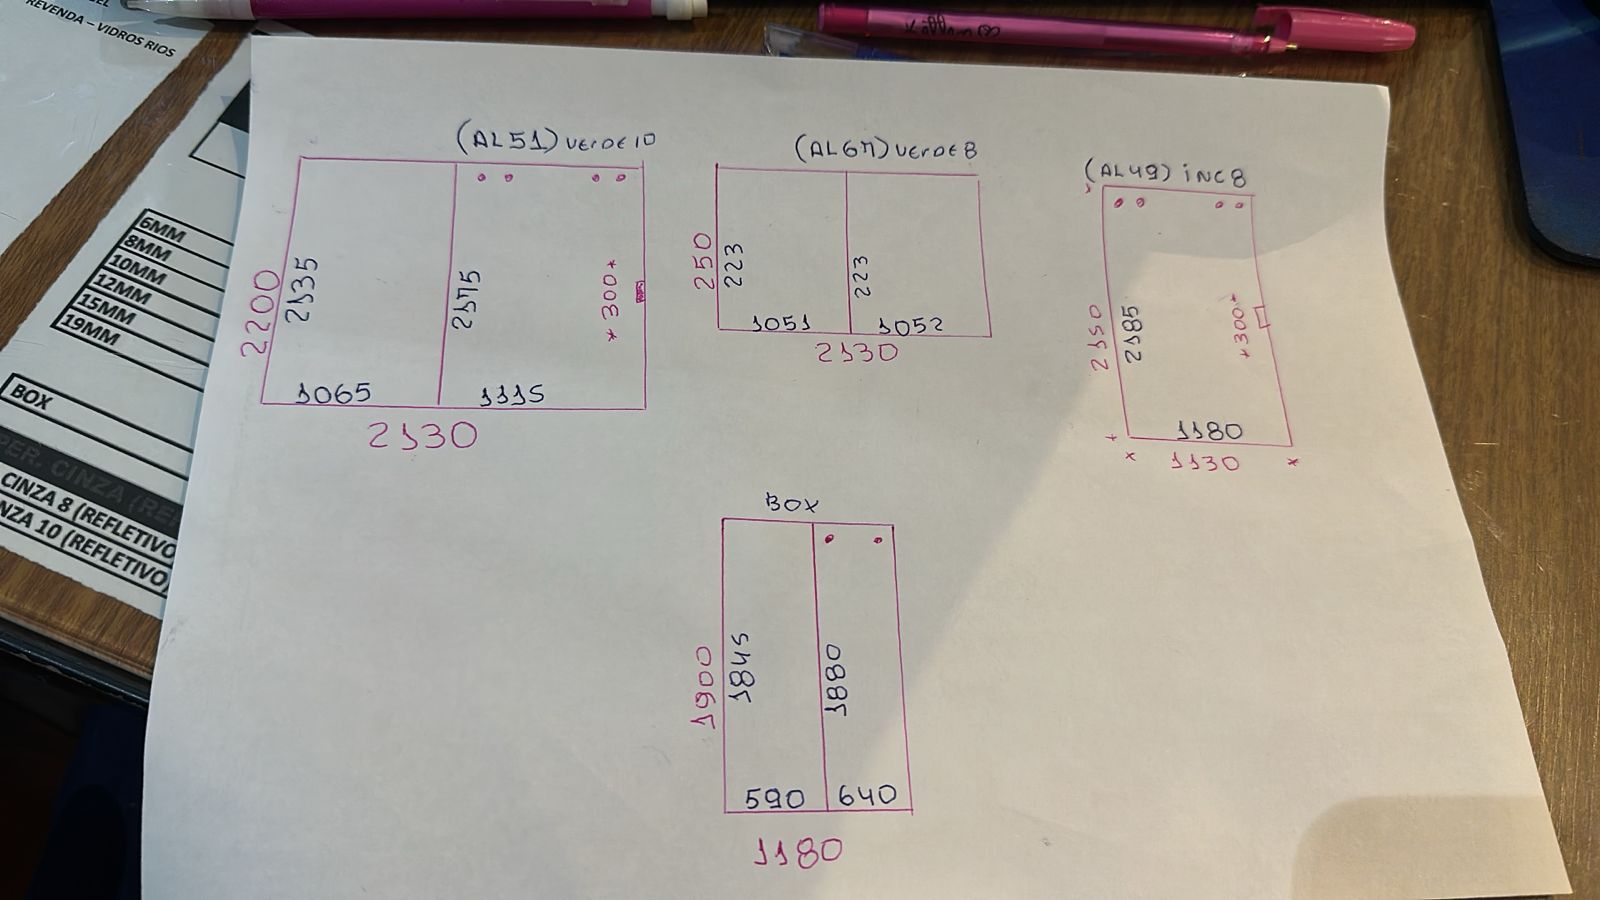 EL
REVENDA – VIDROS RIOS
6MM
8MM
10MM
12MM
15MM
19MM
BOX
PER. CINZA (RE
CINZA 8 (REFLETIVO
NZA 10 (REFLETIVO)
(AL51) VERDE 10
2200
2135
2175
*300*
1065
1115
2130
(AL67) VERDE 8
250
223
223
1051
1052
2130
(AL49) iNC 8
2150
2185
*300*
1180
1130
BOX
1900
1845
1880
590
640
1180